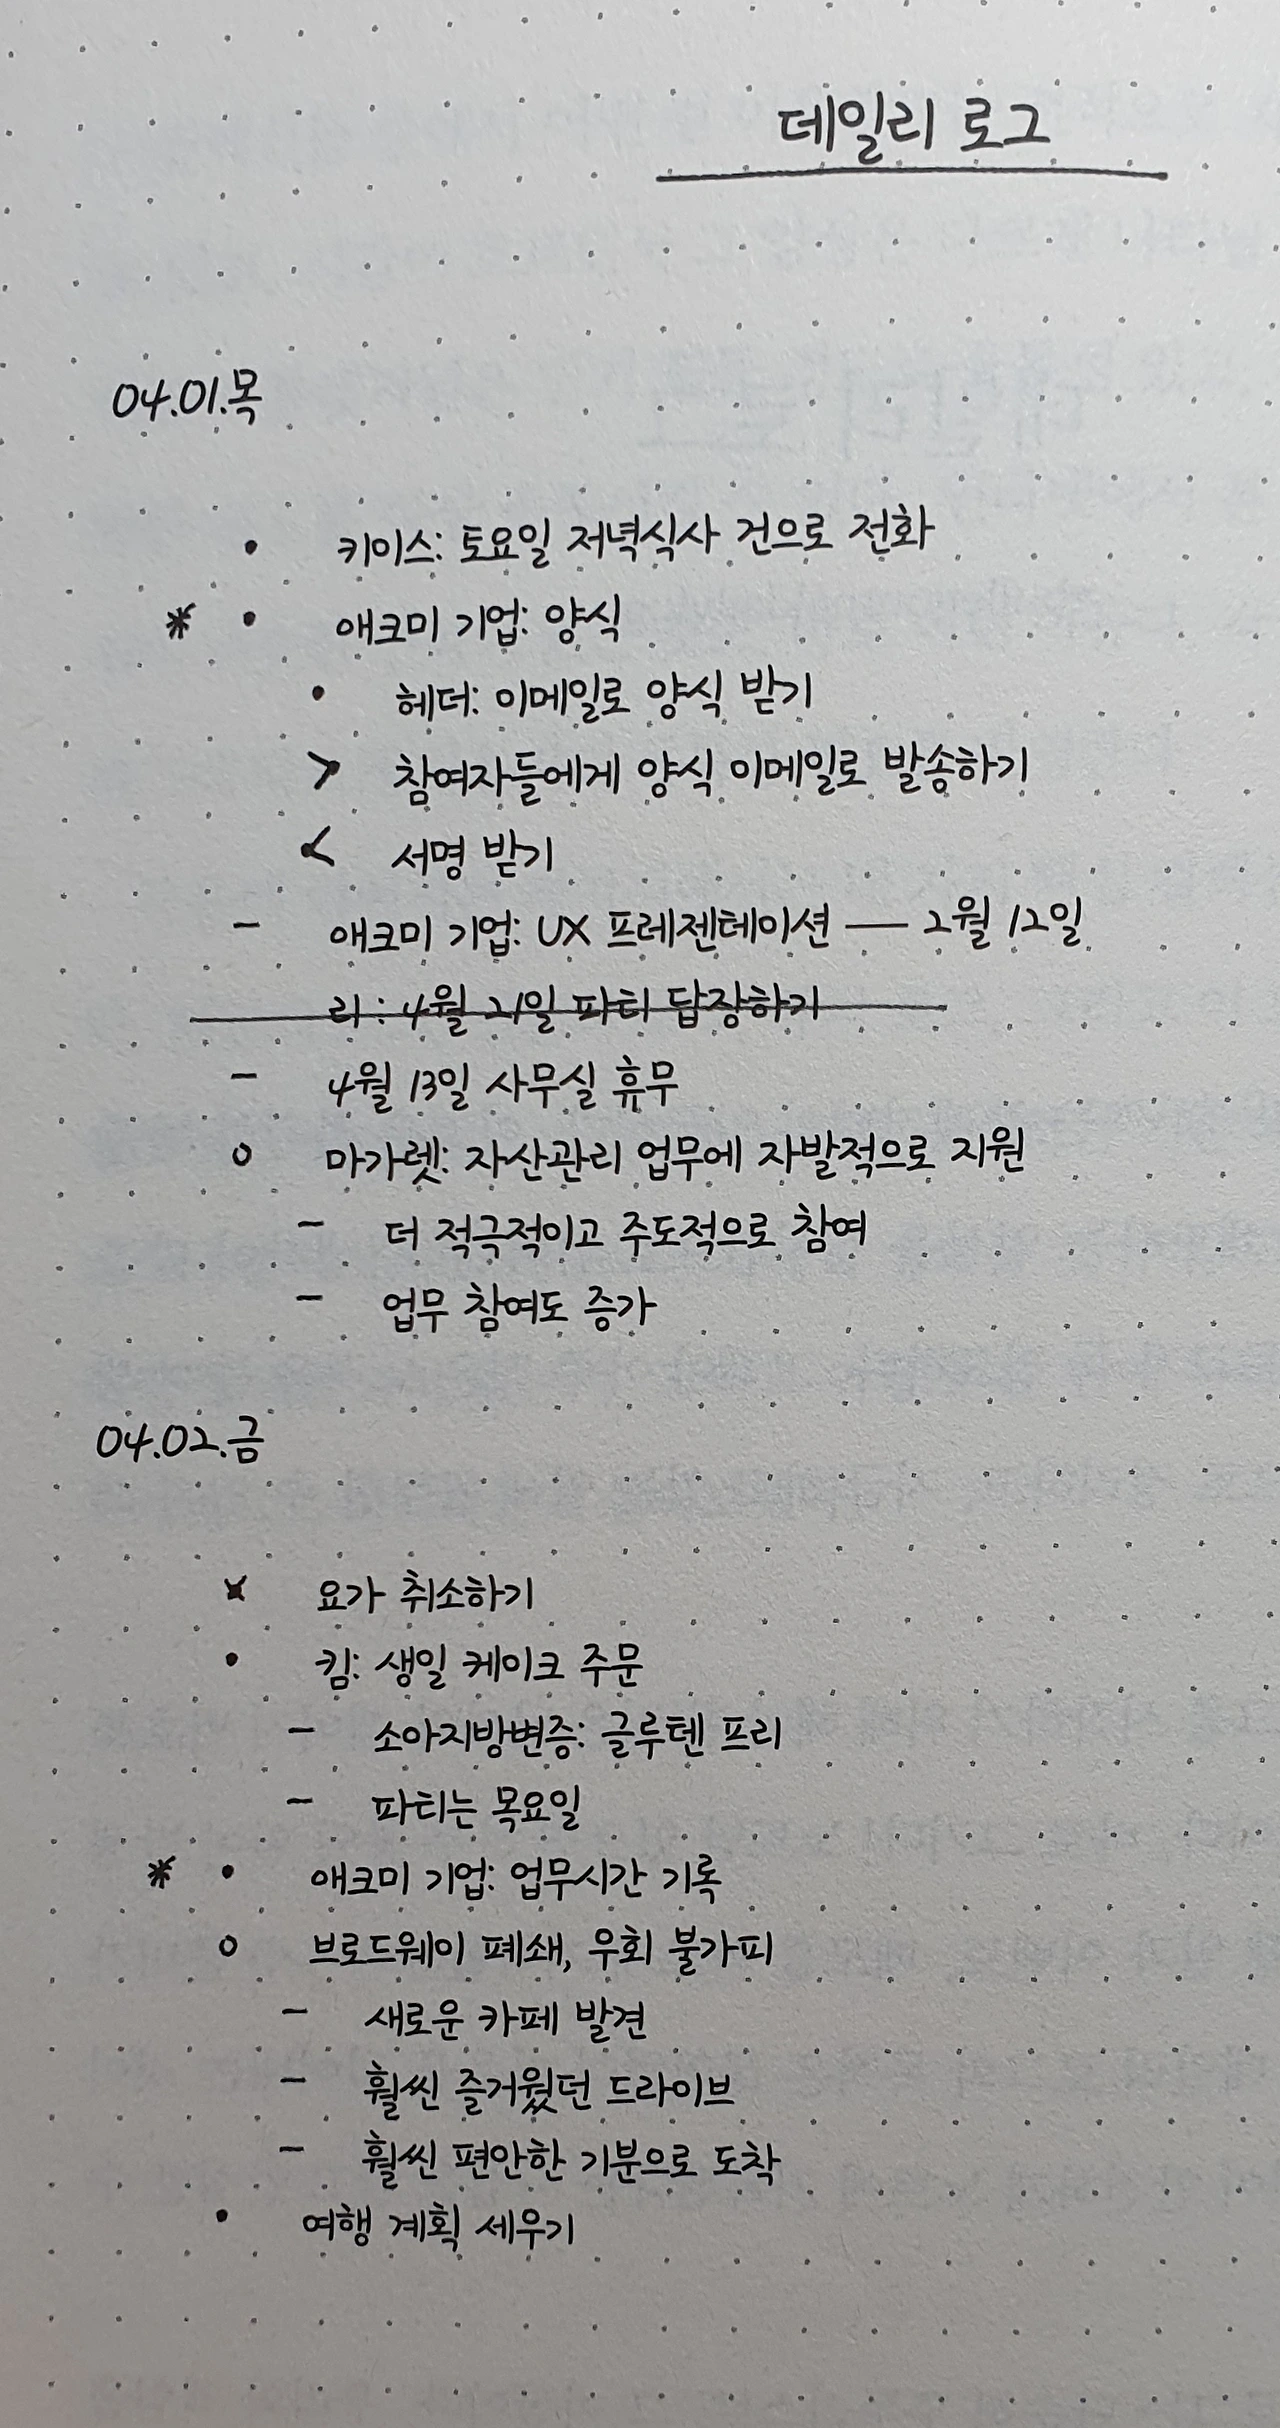 데일리 로그
04.01.목
• 키이스: 토요일 저녁식사 건으로 전화
* • 애크미 기업: 양식
• 헤더: 이메일로 양식 받기
> 참여자들에게 양식 이메일로 발송하기
< 서명 받기
- 애크미 기업: UX 프레젠테이션 — 2월 12일
리: 4월 21일 파티 답장하기
- 4월 13일 사무실 휴무
o 마가렛: 자산관리 업무에 자발적으로 지원
- 더 적극적이고 주도적으로 참여
- 업무 참여도 증가
04.02.금
x 요가 취소하기
• 킴: 생일 케이크 주문
- 소아지방변증: 글루텐 프리
- 파티는 목요일
* • 애크미 기업: 업무시간 기록
o 브로드웨이 폐쇄, 우회 불가피
- 새로운 카페 발견
- 훨씬 즐거웠던 드라이브
- 훨씬 편안한 기분으로 도착
• 여행 계획 세우기